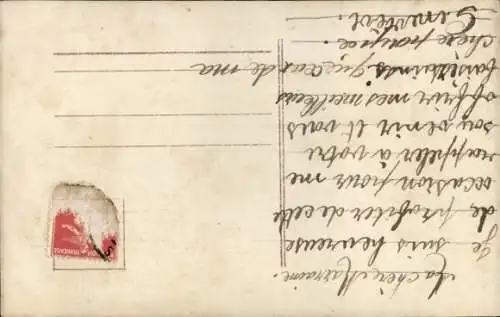 Ma chère Marraine.
Je suis heureuse
de profiter de cette
occasion pour me
rappeler à votre
souvenir et vous
offrir mes meilleurs
baisers
chère
de ma